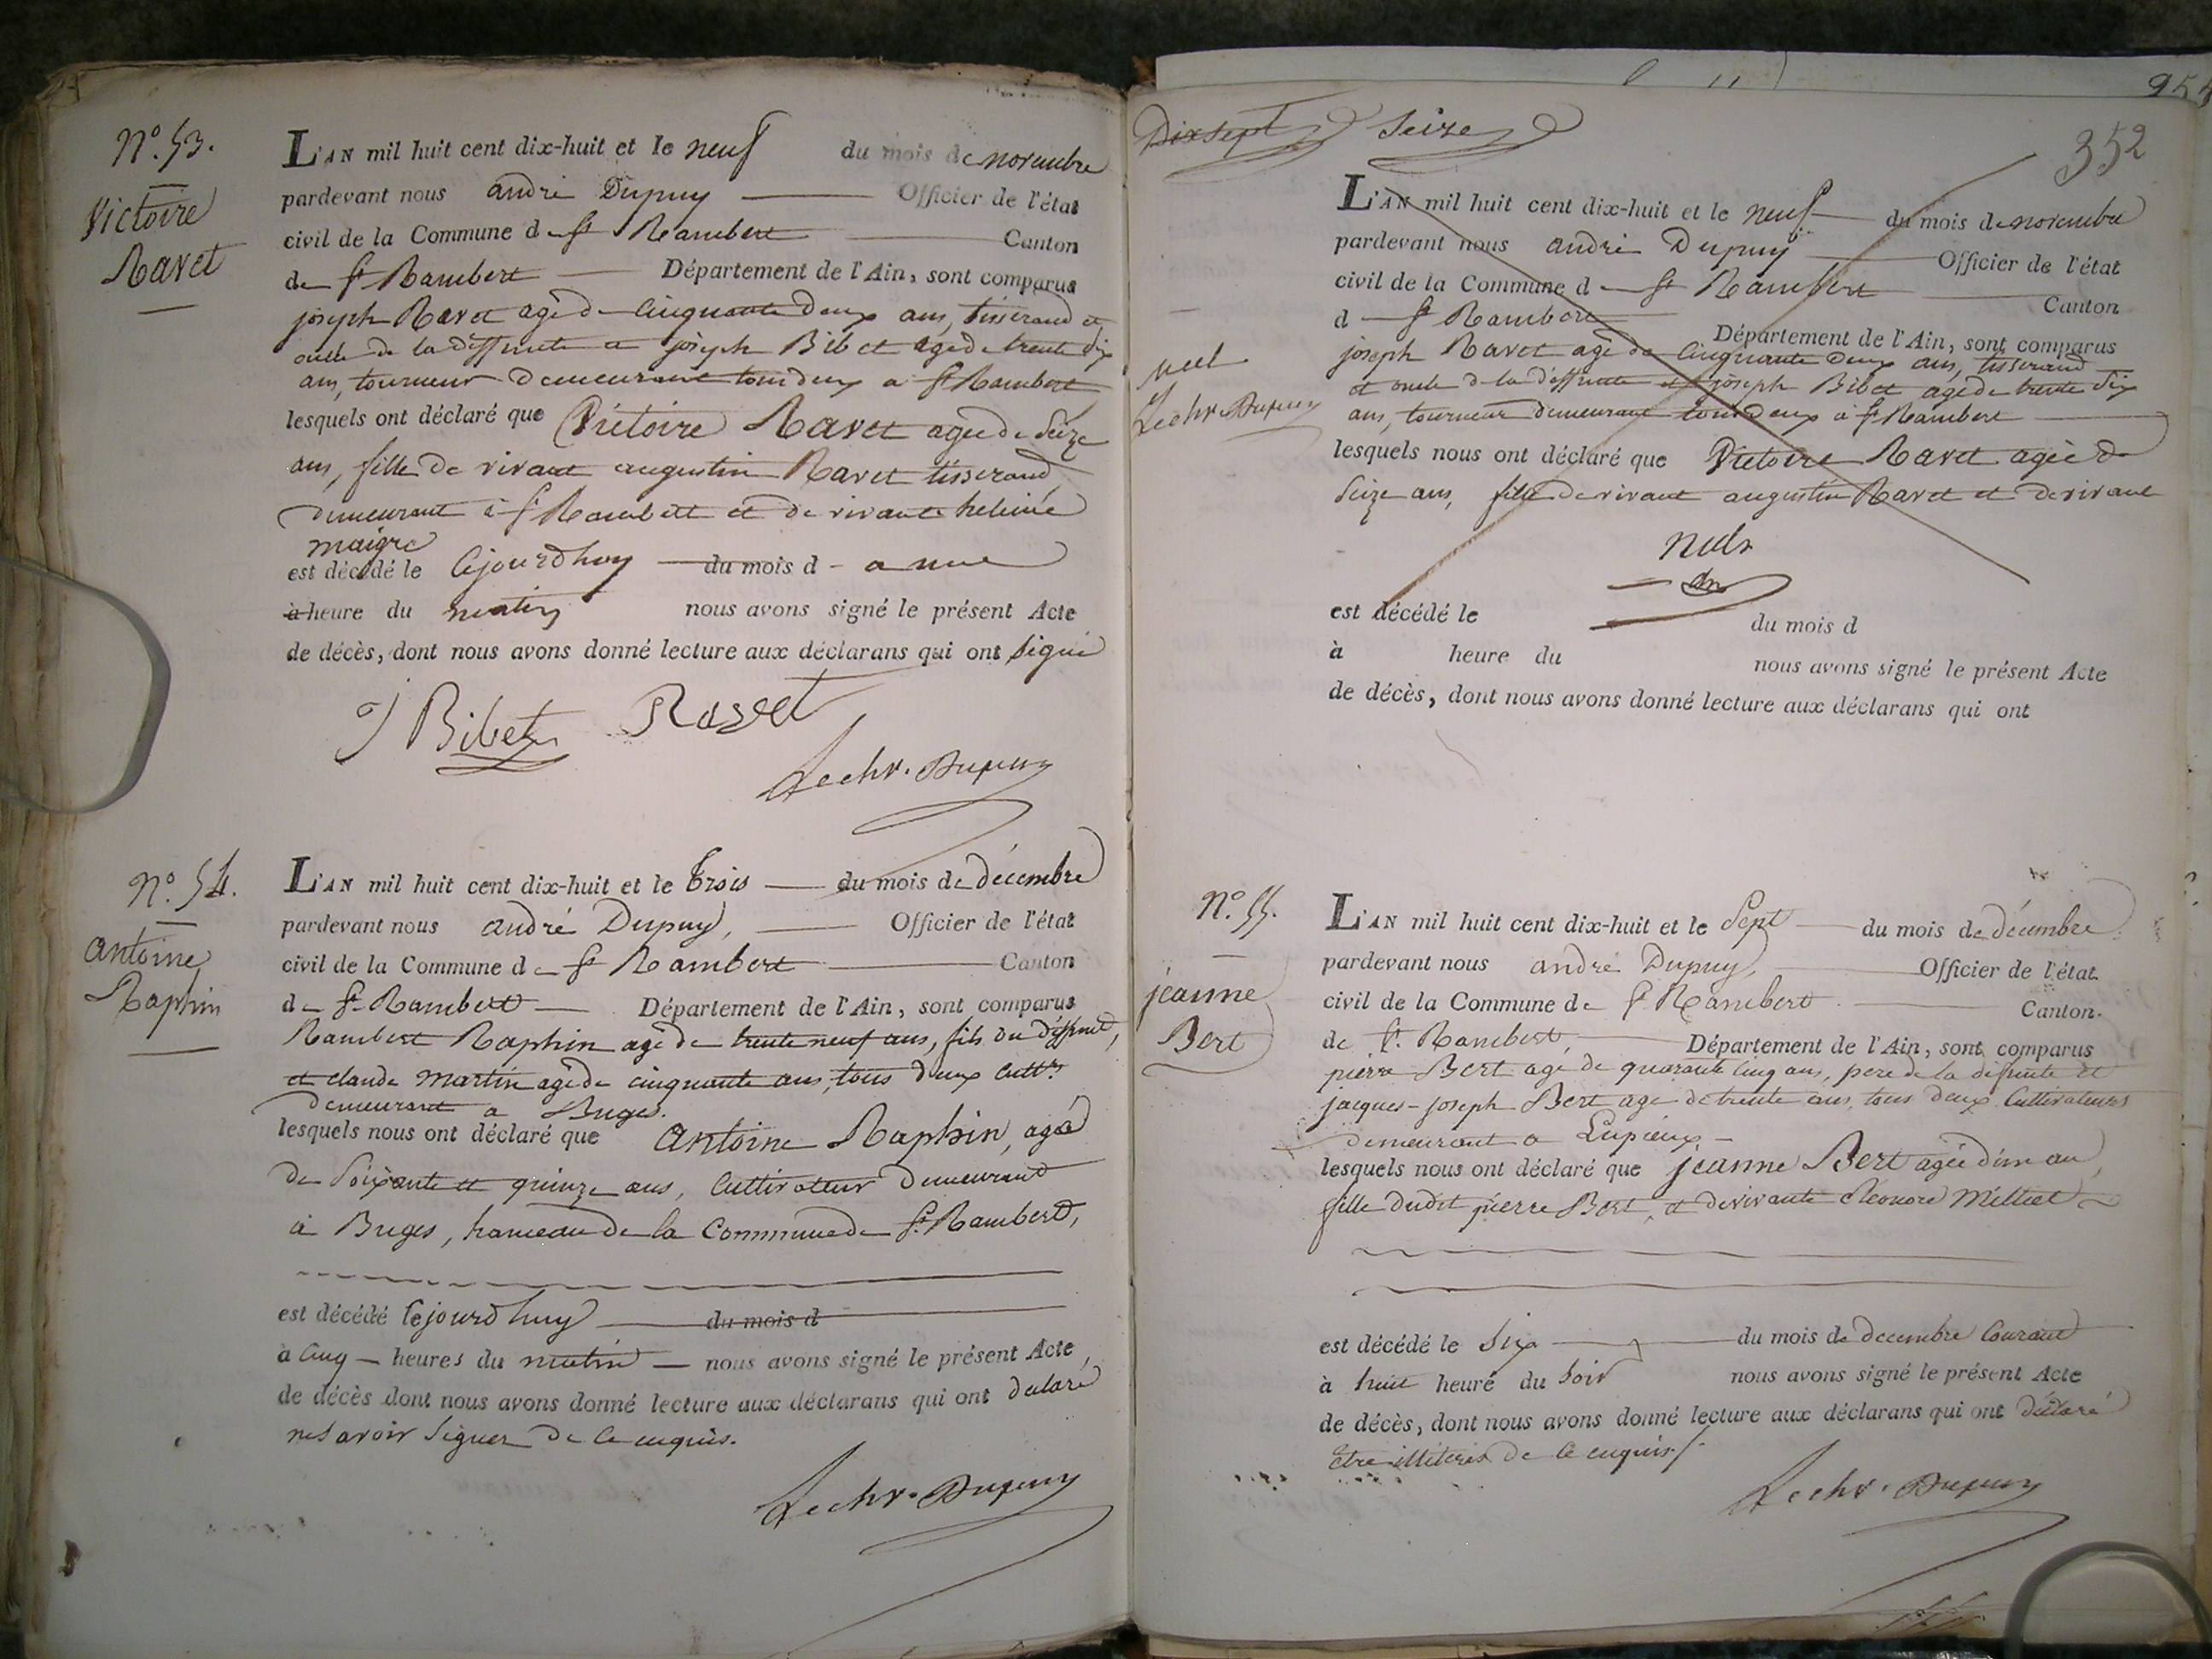 N.º 53.
Victoire
Ravet
L'AN mil huit cent dix-huit et le neuf du mois de novembre
pardevant nous andré Dupuy Officier de l'état
civil de la Commune de St Rambert Canton
de St Rambert Département de l'Ain, sont comparus
joseph Ravet agé de cinquante deux ans, tisserand et
oncle de la deffunte et joseph Bibet agé de trente six
ans, tourneur demeurant tous deux a St Rambert
lesquels ont déclaré que Victoire Ravet agée de seize
ans, fille de vivant augustin Ravet tisserand
demeurant à St Rambert et de vivante
maigre
est décédé le cejourdhuy du mois d a une
à heure du matin nous avons signé le présent Acte
de décès, dont nous avons donné lecture aux déclarans qui ont signé
J Bibet Ravet
Le chr. Dupuy
N.º 54.
antoine
Raphin
L'AN mil huit cent dix-huit et le trois du mois de décembre
pardevant nous andré Dupuy, Officier de l'état
civil de la Commune de St Rambert Canton
de St Rambert Département de l'Ain, sont comparus
Rambert Raphin agé de trente neuf ans, fils du deffunt,
et claude martin agé de cinquante ans, tous deux cultrs
demeurant a Buges.
lesquels nous ont déclaré que antoine Raphin, agé
de soixante et quinze ans, cultivateur demeurant
à Buges, hameau de la Commune de St Rambert,
est décédé cejourdhuy du mois d
à cinq heures du matin nous avons signé le présent Acte,
de décès dont nous avons donné lecture aux déclarans qui ont declaré
ne savoir signer de ce enquis.
Le chr. Dupuy
954
Dix sept Seize
352
nul
Le chr. Dupuy
L'AN mil huit cent dix-huit et le neuf du mois de novembre
pardevant nous andré Dupuy Officier de l'état
civil de la Commune de St Rambert Canton
d St Rambert Département de l'Ain, sont comparus
joseph Ravet agé de cinquante deux ans, tisserand
et oncle de la deffunte et joseph Bibet agé de trente six
ans, tourneur demeurant tous deux a St Rambert
lesquels nous ont déclaré que Victoire Ravet agée de
seize ans, fille de vivant augustin Ravet et de vivant
nul
est décédé le du mois d
à heure du nous avons signé le présent Acte
de décès, dont nous avons donné lecture aux déclarans qui ont
N.º 55.
jeanne
Bert
L'AN mil huit cent dix-huit et le sept du mois de décembre
pardevant nous andré Dupuy, Officier de l'état
civil de la Commune de St Rambert Canton
de St Rambert, Département de l'Ain, sont comparus
pierre Bert agé de quarante cinq ans, pere de la defunte et
jacques-joseph Bert agé de trente ans, tous deux cultivateurs
demeurant a Lupieux
lesquels nous ont déclaré que jeanne Bert agée d'un an,
fille dudit pierre Bert, et de vivante Eleonore Milliet
est décédé le six du mois de decembre courant
à huit heure du soir nous avons signé le présent Acte
de décès, dont nous avons donné lecture aux déclarans qui ont déclaré
être illiterés de ce enquis
Le chr. Dupuy